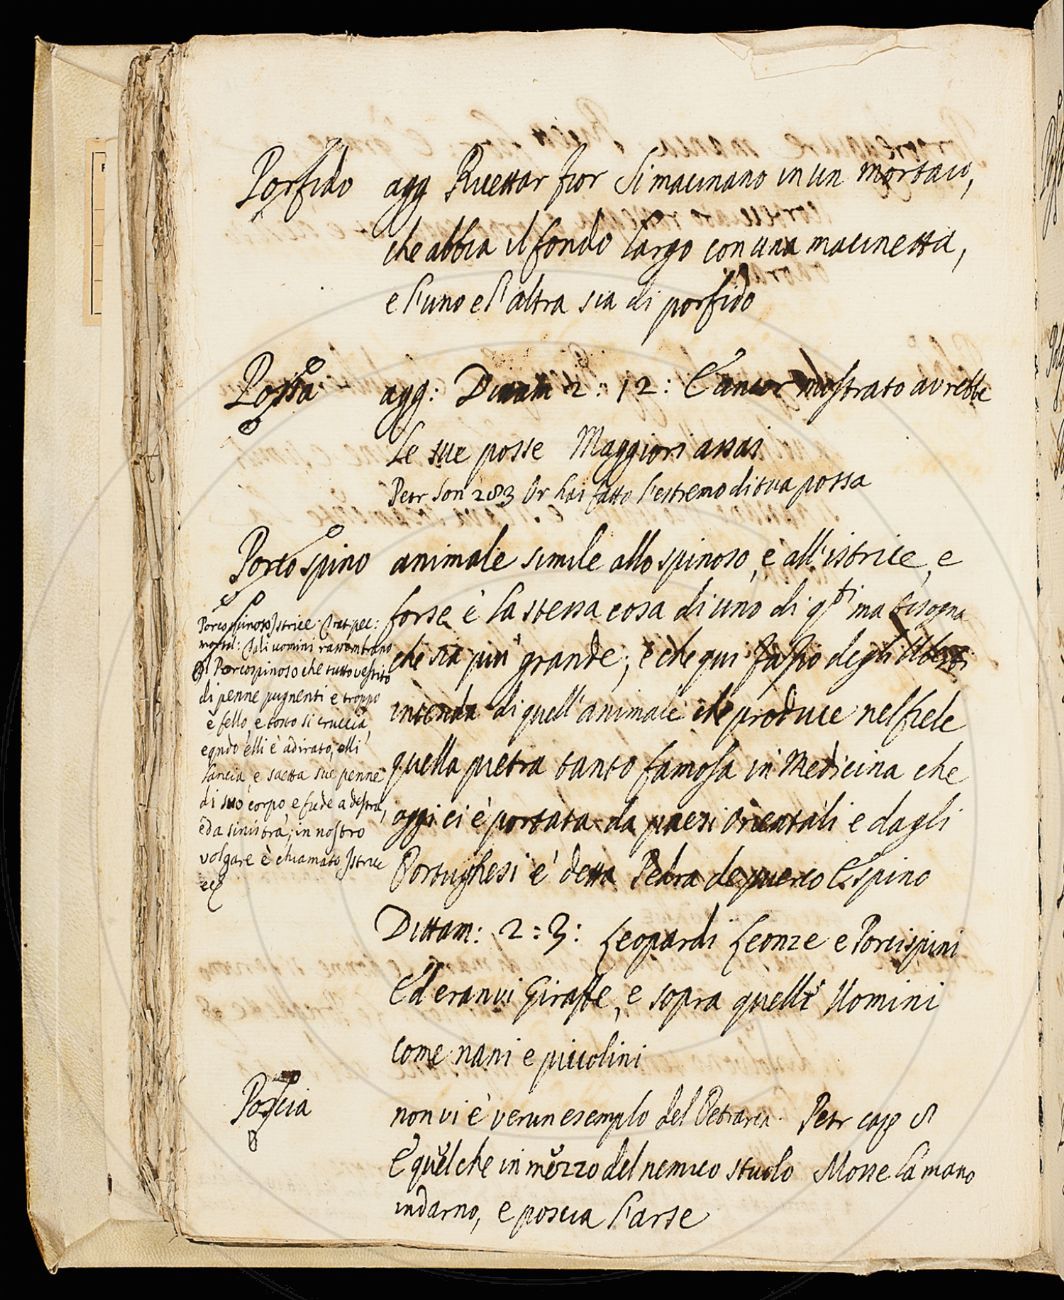 Porfido agg Ricettar fior Si macinano in un mortaio,
che abbia il fondo largo con una macinetta,
e l'uno e l'altra sia di porfido
Possa agg: Dittam 2: 12: E ancor mostrato avrebbe
Le sue posse Maggiori assai
Petr Son 283 Or hai fatto l'estremo di tua possa
Porco spino animale simile allo spinoso, e all'istrice, e
forse è la stessa cosa di uno di qti ma bisogna
che sia più grande; e che qui Fazio degli Uberti
intenda di quell'animale che produce nel fiele
quella pietra tanto famosa in Medicina che
oggi ci è portata da paesi orientali e dagli
Portughesi è detta Pedra de puerco Espino
Dittam: 2:3: Leopardi Leonze e Porcispini
Ed eranvi Giraffe, e sopra quelle Uomini
come nani e piccolini
Porcospinoso Istrice. Trat pec:
mort: Tali uomini rassembrano
il Porcospinoso che tutto vestito
di penne pugnenti e troppo
è fello, e tosto si cruccia,
e qndo elli è adirato, elli
lancia, e saetta sue penne
di suo corpo e fiede a destra,
ed a sinistra; in nostro
volgare è chiamato Istrice
ec
Poscia non vi è verun esemplo del Petrarca. Petr cap 8
E quel che in mezzo del nemico stuolo Mosse la mano
indarno, e poscia l'arse